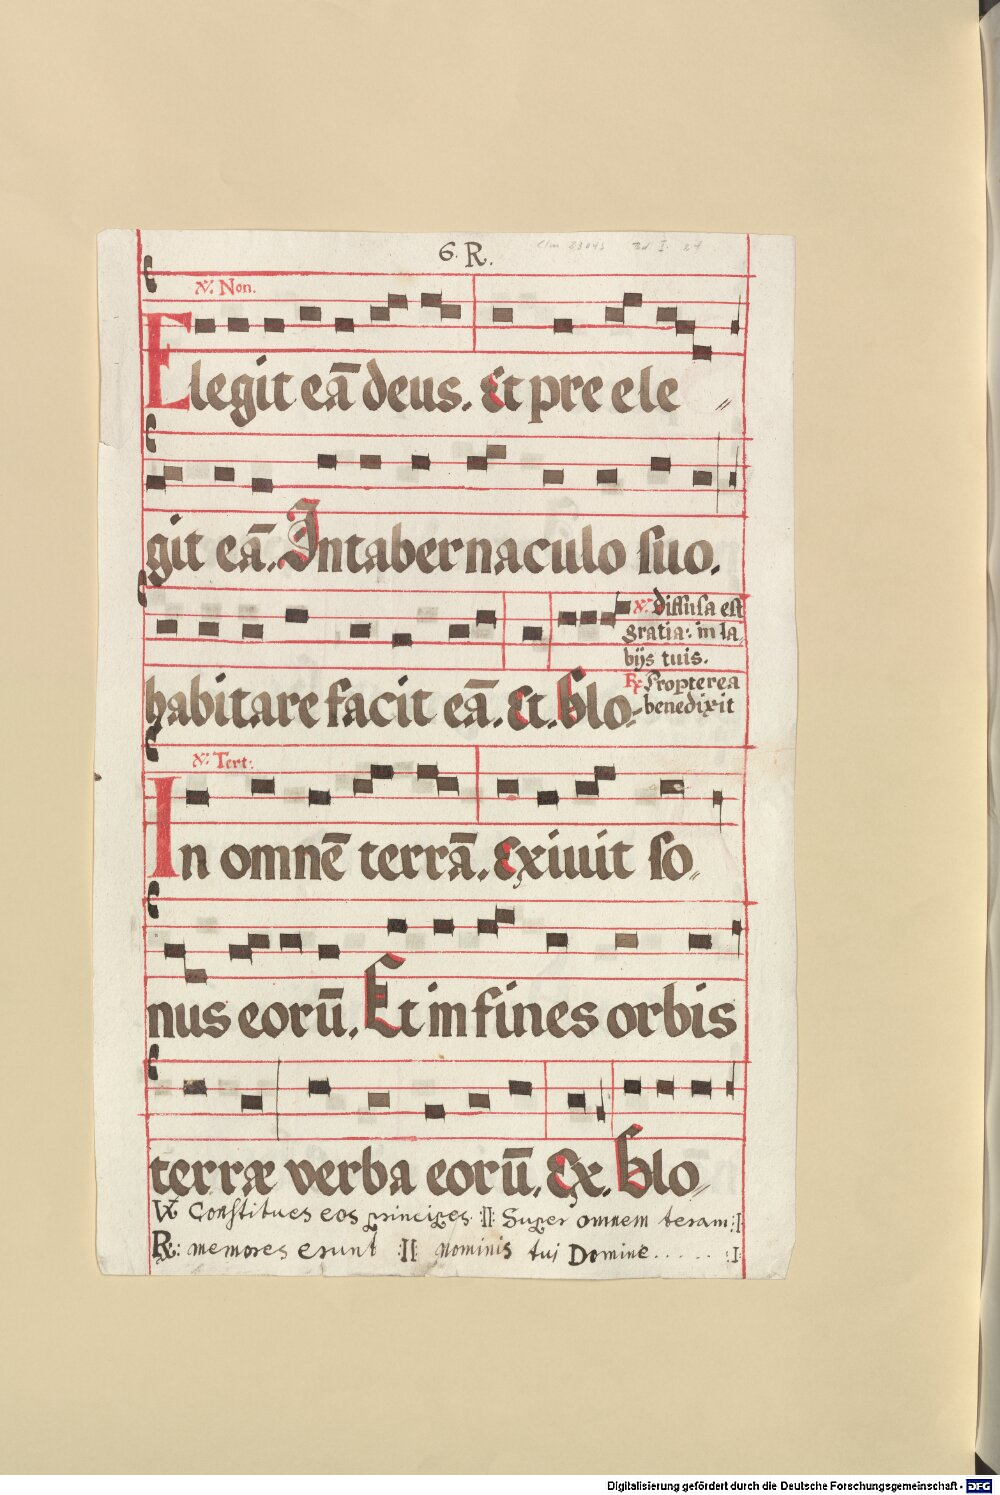 6. R.
Clm 23043 Bd I. 87
℣. Non.
Elegit eā deus. Et pre ele
git eā. In tabernaculo suo.
℣. Diffusa est
gratia: in la
bijs tuis.
habitare facit eā. Et. Glo.
℟ Propterea
benedixit
℣. Tert:
In omnē terrā. Exiuit so
nus eorū. Et in fines orbis
terræ verba eorū. Ex. Glo
℣ Constitues eos principes :||: Super omnem teram :|
℟: memores erunt :||: nominis tui Domine...... :|
Digitalisierung gefördert durch die Deutsche Forschungsgemeinschaft - DFG